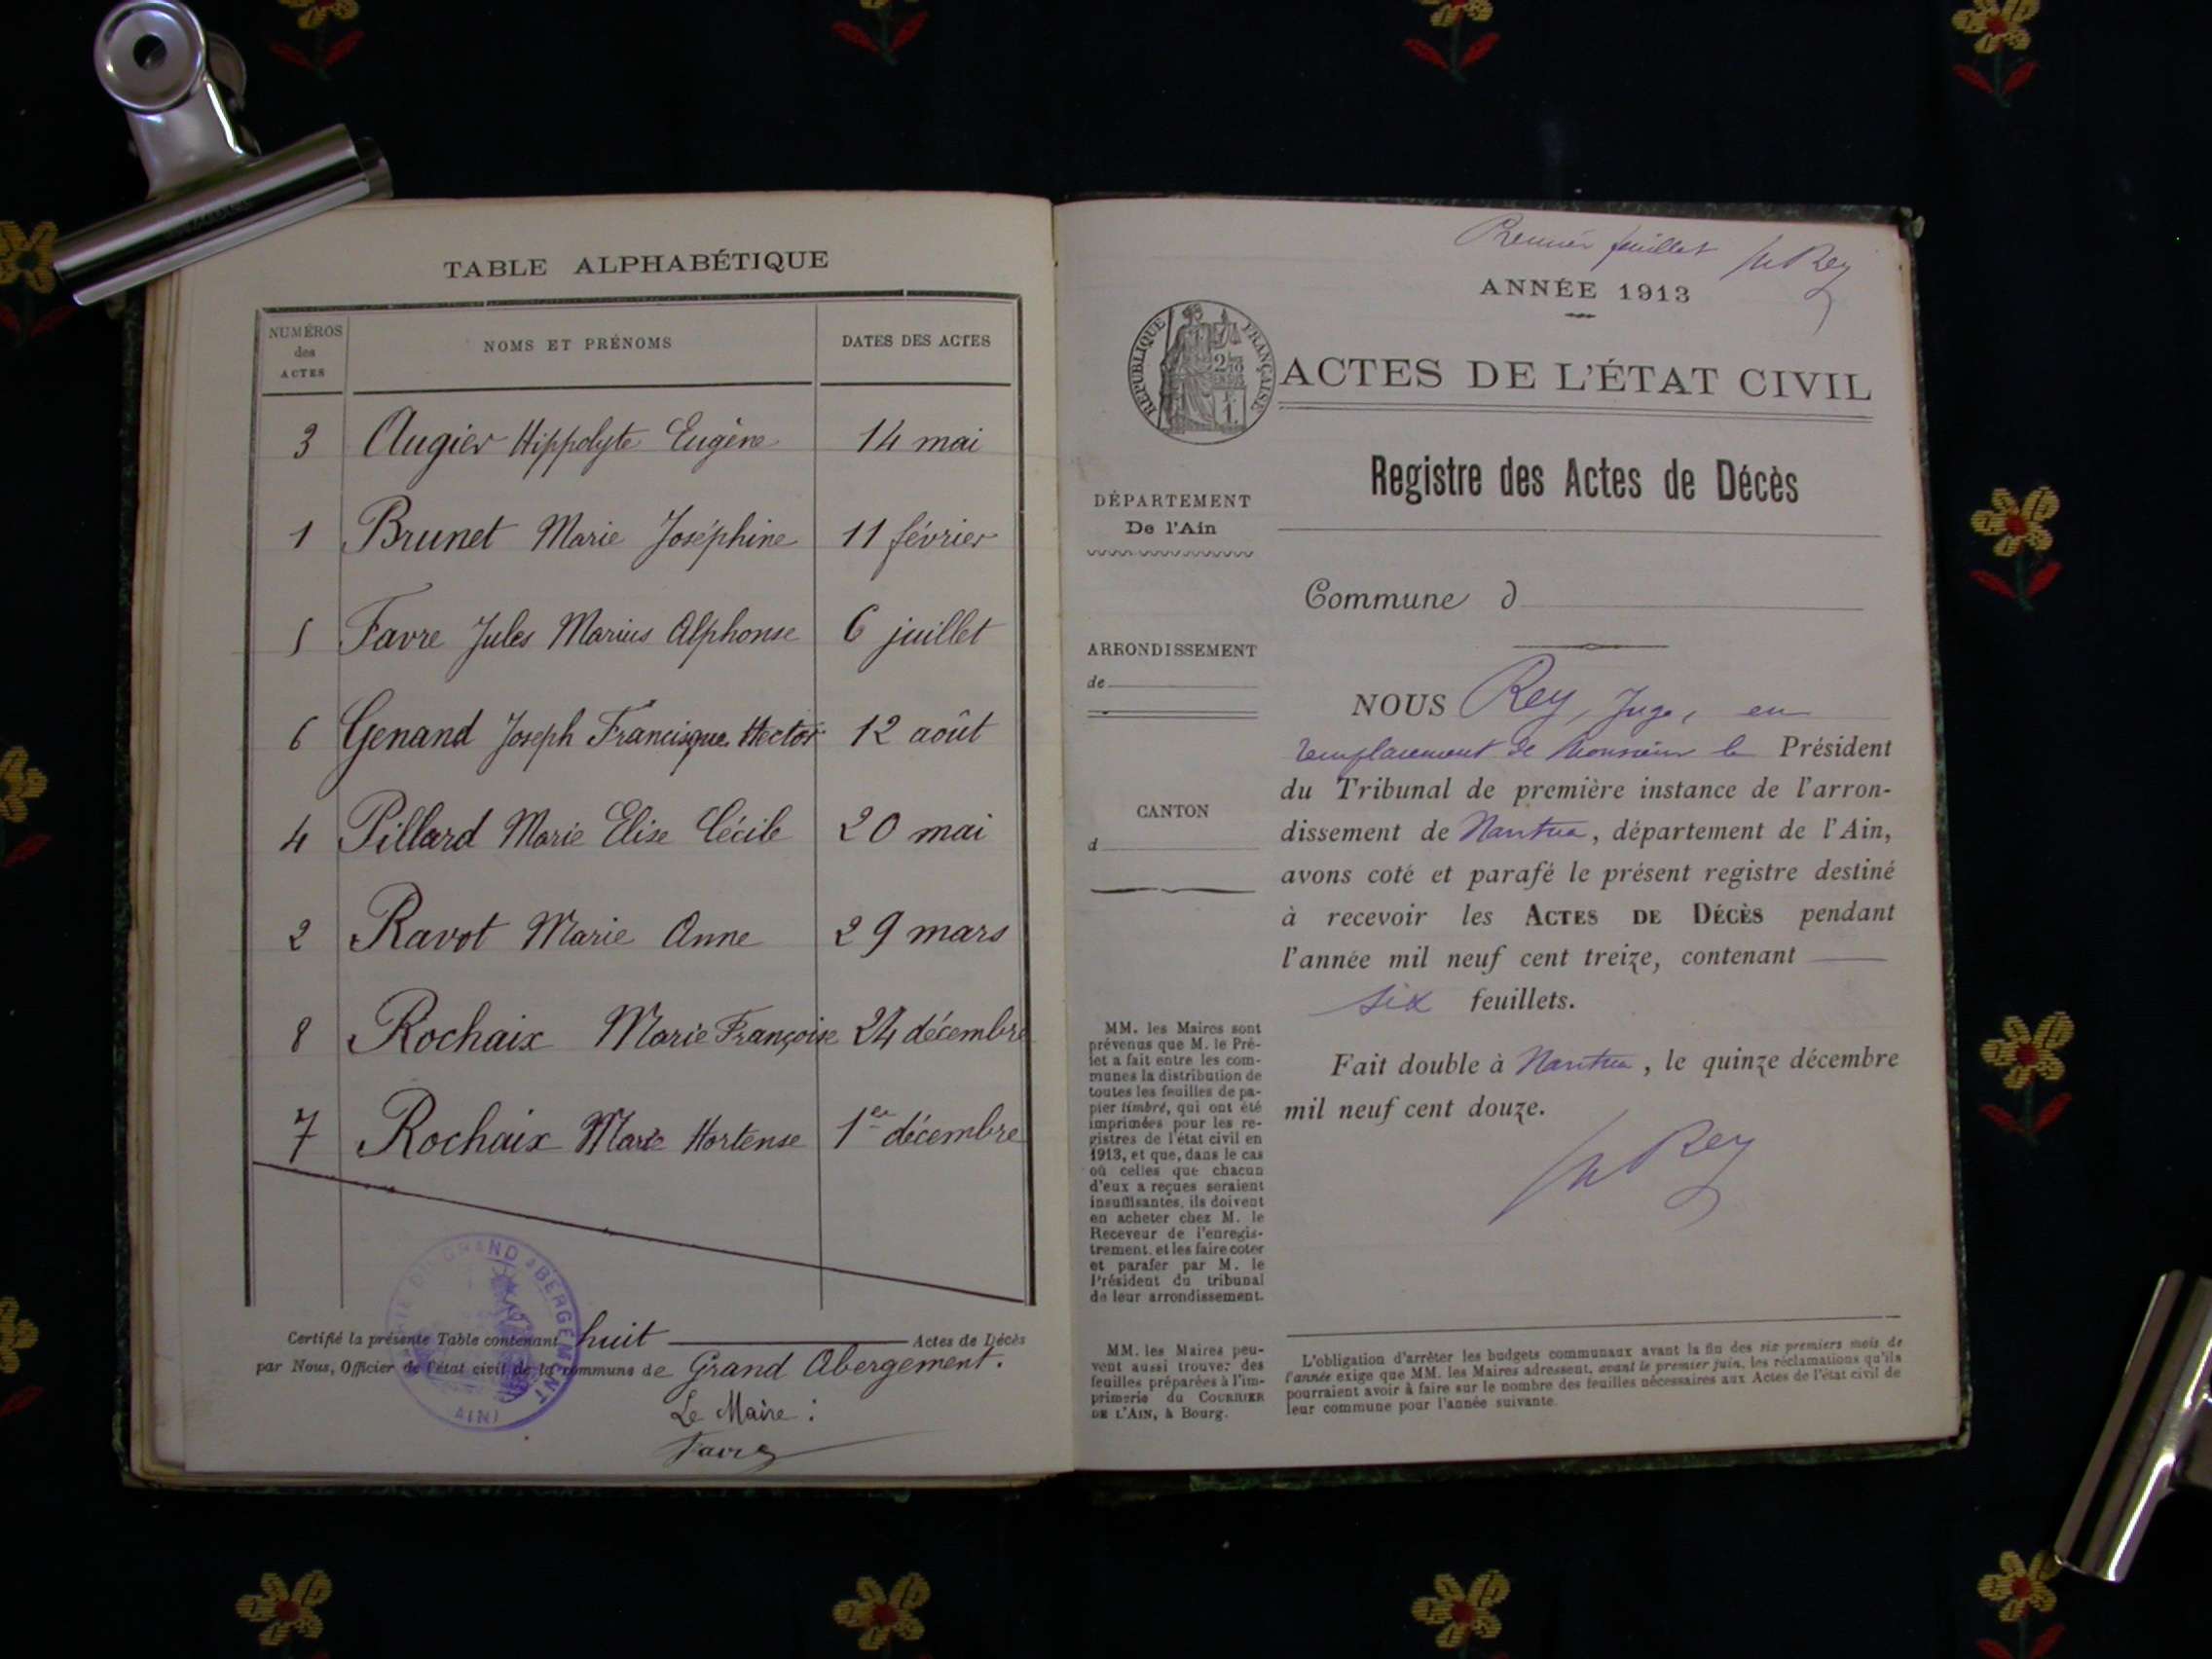 TABLE ALPHABÉTIQUE
NUMÉROS des ACTES NOMS ET PRÉNOMS DATES DES ACTES
3 Augier Hippolyte Eugène 14 mai
1 Brunet Marie Joséphine 11 février
5 Favre Jules Marius Alphonse 6 juillet
6 Genand Joseph Francisque Hector 12 août
4 Pillard Marie Elise Cécile 20 mai
2 Ravot Marie Anne 29 mars
8 Rochaix Marie Françoise 24 décembre
7 Rochaix Marie Hortense 1er décembre
Certifié la présente Table contenant huit Actes de Décès
par Nous, Officier de l'état civil de la commune de Grand Abergement.
Le Maire :
Favre
MAIRIE DU GRAND ABERGEMENT
(AIN)
Premier feuillet Rey
ANNÉE 1913
RÉPUBLIQUE FRANÇAISE
ACTES DE L'ÉTAT CIVIL
Registre des Actes de Décès
DÉPARTEMENT
De l'Ain
Commune d
ARRONDISSEMENT
de
CANTON
d
NOUS Rey, Juge, en
remplacement de Monsieur le Président
du Tribunal de première instance de l'arron-
dissement de Nantua, département de l'Ain,
avons coté et parafé le présent registre destiné
à recevoir les ACTES DE DÉCÈS pendant
l'année mil neuf cent treize, contenant
six feuillets.
Fait double à Nantua, le quinze décembre
mil neuf cent douze.
Rey
MM. les Maires sont
prévenus que M. le Pré-
fet a fait entre les com-
munes la distribution de
toutes les feuilles de pa-
pier timbré, qui ont été
imprimées pour les re-
gistres de l'état civil en
1913, et que, dans le cas
où celles que chacun
d'eux a reçues seraient
insuffisantes, ils doivent
en acheter chez M. le
Receveur de l'enregis-
trement, et les faire coter
et parafer par M. le
Président du tribunal
de leur arrondissement.
MM. les Maires peu-
vent aussi trouver des
feuilles préparées à l'im-
primerie du COURRIER
DE L'AIN, à Bourg.
L'obligation d'arrêter les budgets communaux avant la fin des six premiers mois de
l'année exige que MM. les Maires adressent, avant le premier juin, les réclamations qu'ils
pourraient avoir à faire sur le nombre des feuilles nécessaires aux Actes de l'état civil de
leur commune pour l'année suivante.